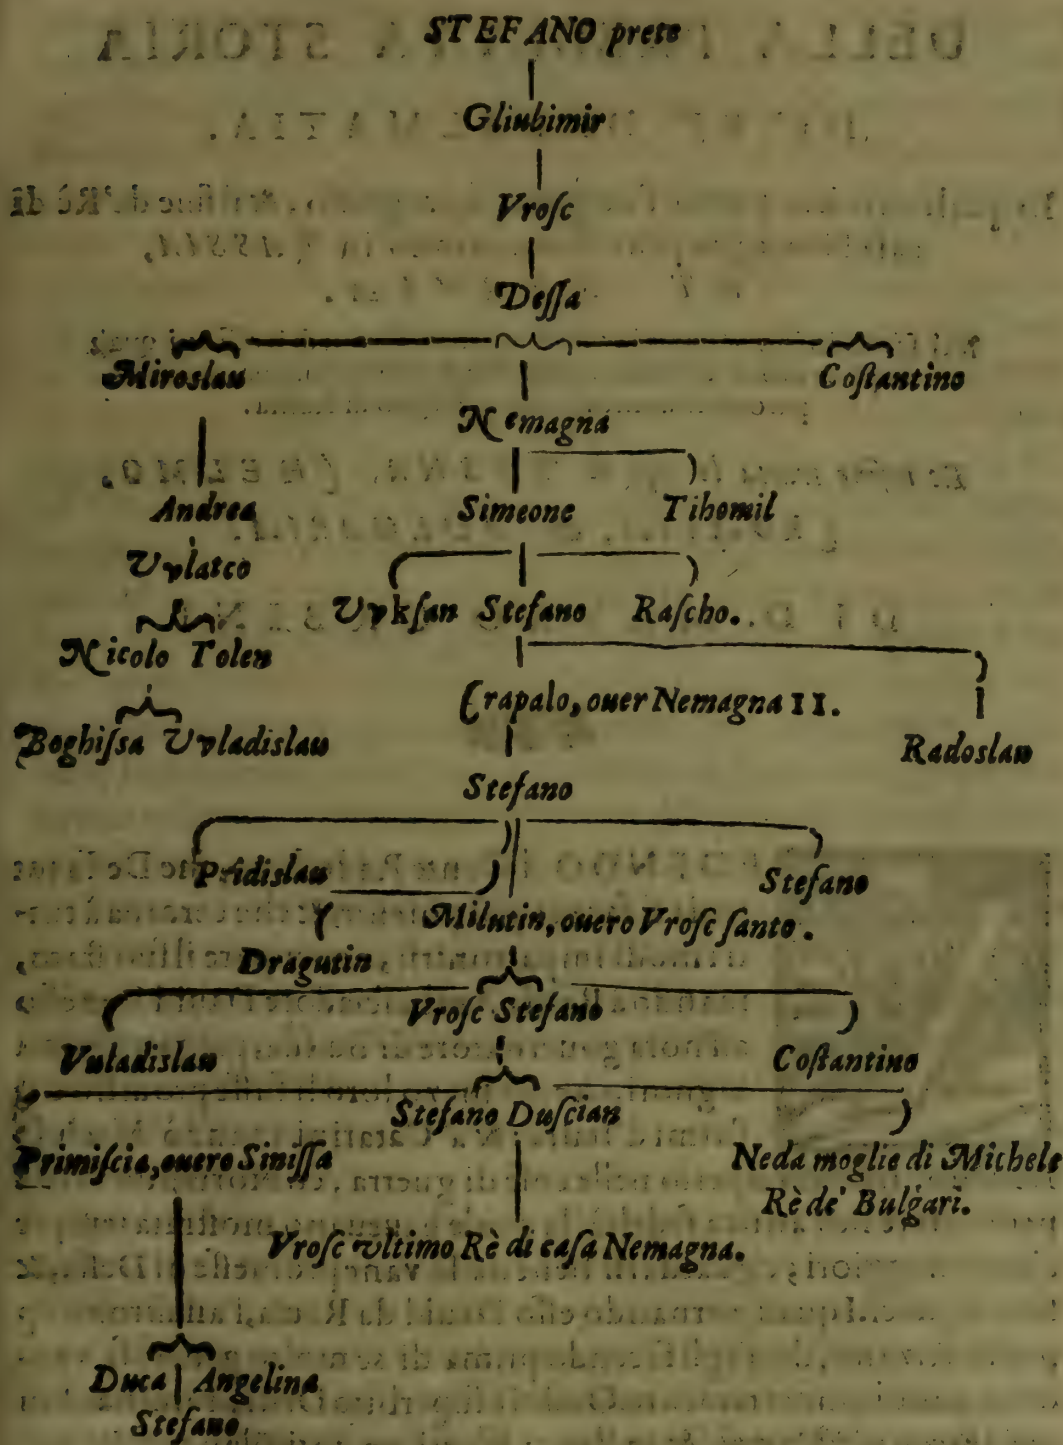 STEFANO prete
Gliubimir
Vroſc
Deſſa
Miroslau Coſtantino
Nemagna
Andrea Simeone Tihomil
Vvlatco
Vvkſan Stefano Raſcho.
Nicolo Tolen
Crapalo, ouer Nemagna II.
Boghiſsa Vvladislau Radoslau
Stefano
Pridislau Stefano
Milutin, ouero Vroſc ſanto.
Dragutin
Vroſc Stefano
Vuladislau Coſtantino
Stefano Duſcian
Primiſcia, ouero Siniſſa Neda moglie di Michele
Rè de' Bulgari.
Vroſc vltimo Rè di caſa Nemagna.
Duca Angelina
Stefano